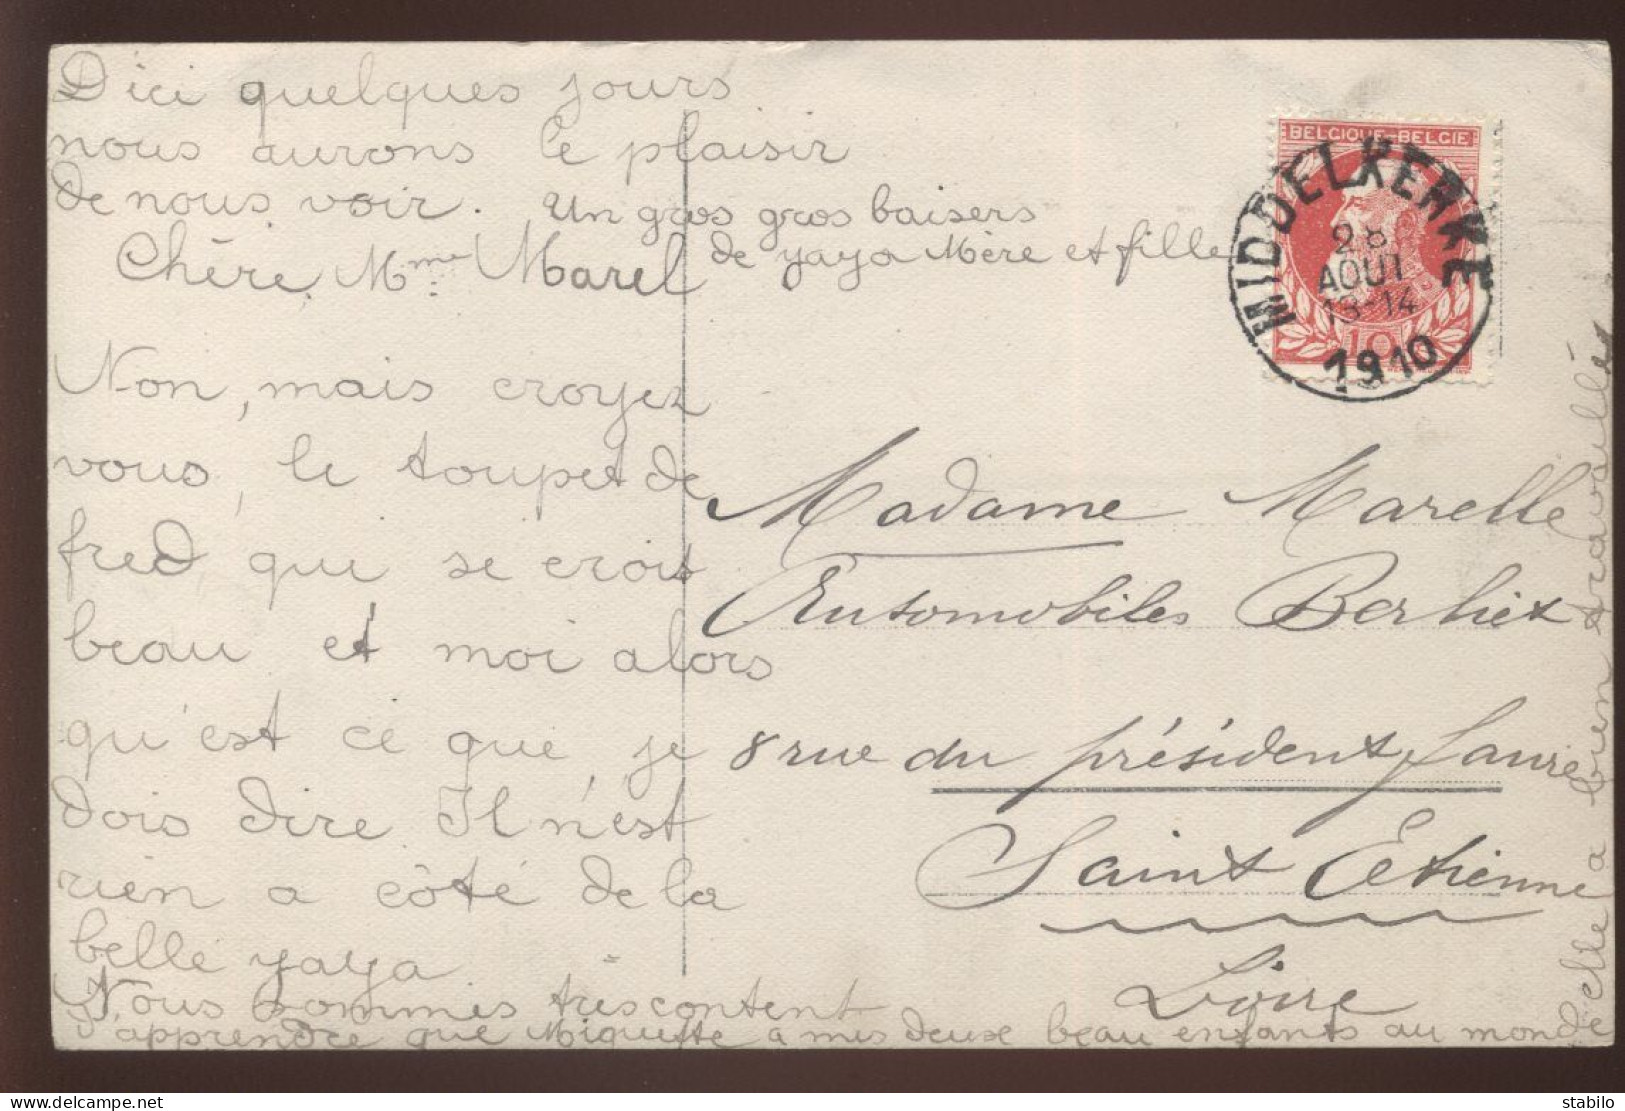 D'ici quelques jours
nous aurons le plaisir
de nous voir. Un gros gros baisers
de yaya Mère et fille
Chère Mme Marel
Non, mais croyez
vous, le toupet de
fred qui se croit
beau et moi alors
qu'est ce que je
dois dire Il n'est
rien a côté de la
belle yaya
Nous sommes très content
d'apprendre que Miquette a mis deux beau enfants au monde
elle a bien travaillée
BELGIQUE-BELGIE
MIDDELKERKE
28
AOUT
13-14
1910
10
Madame Marelle
Automobiles Berliet
8 rue du président faure
Saint Etienne
Loire
stabilo
delcampe.net